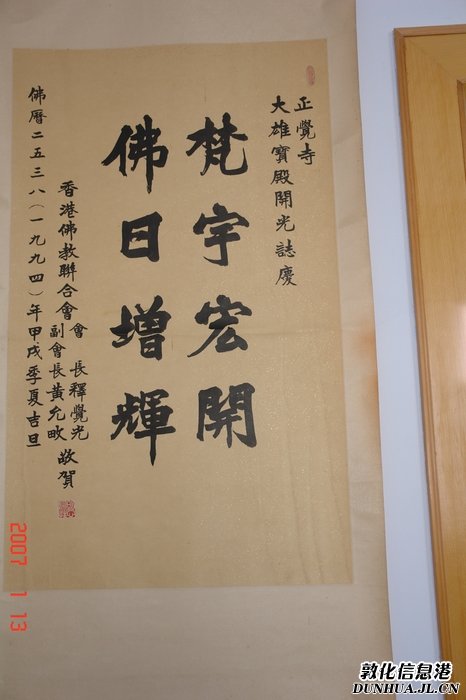 正覺寺
大雄寶殿開光誌慶
梵宇宏開
佛日增輝
香港佛教聯合會會長釋覺光
副會長黃允畋敬賀
佛曆二五三八(一九九四)年甲戌季夏吉旦
2007 1 13
敦化信息港
DUNHUA.JL.CN